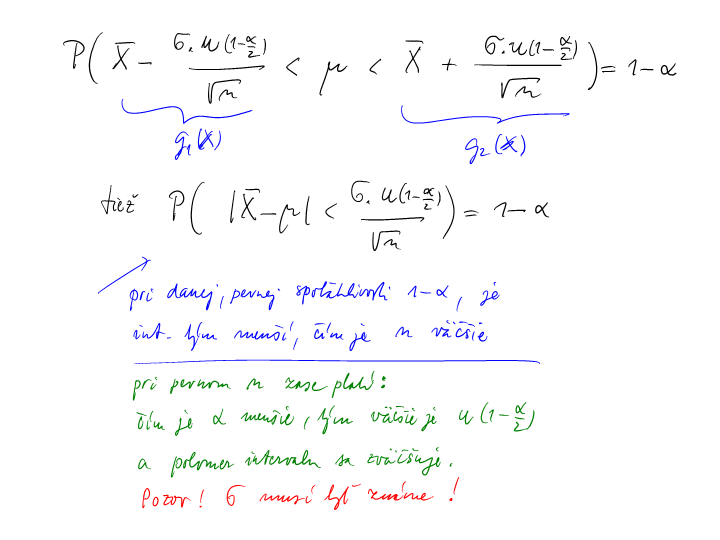 P( X̄ - σ.u(1-α/2)/√n < μ < X̄ + σ.u(1-α/2)/√n ) = 1-α
g₁(X) g₂(X)
tiež P( |X̄-μ| < σ.u(1-α/2)/√n ) = 1-α
pri danej, pevnej spoľahlivosti 1-α, je
int. tým menší, čím je n väčšie
pri pevnom n zase platí:
čím je α menšie, tým väčšie je u(1-α/2)
a polomer intervalu sa zväčšuje.
Pozor! σ musí byť známe!